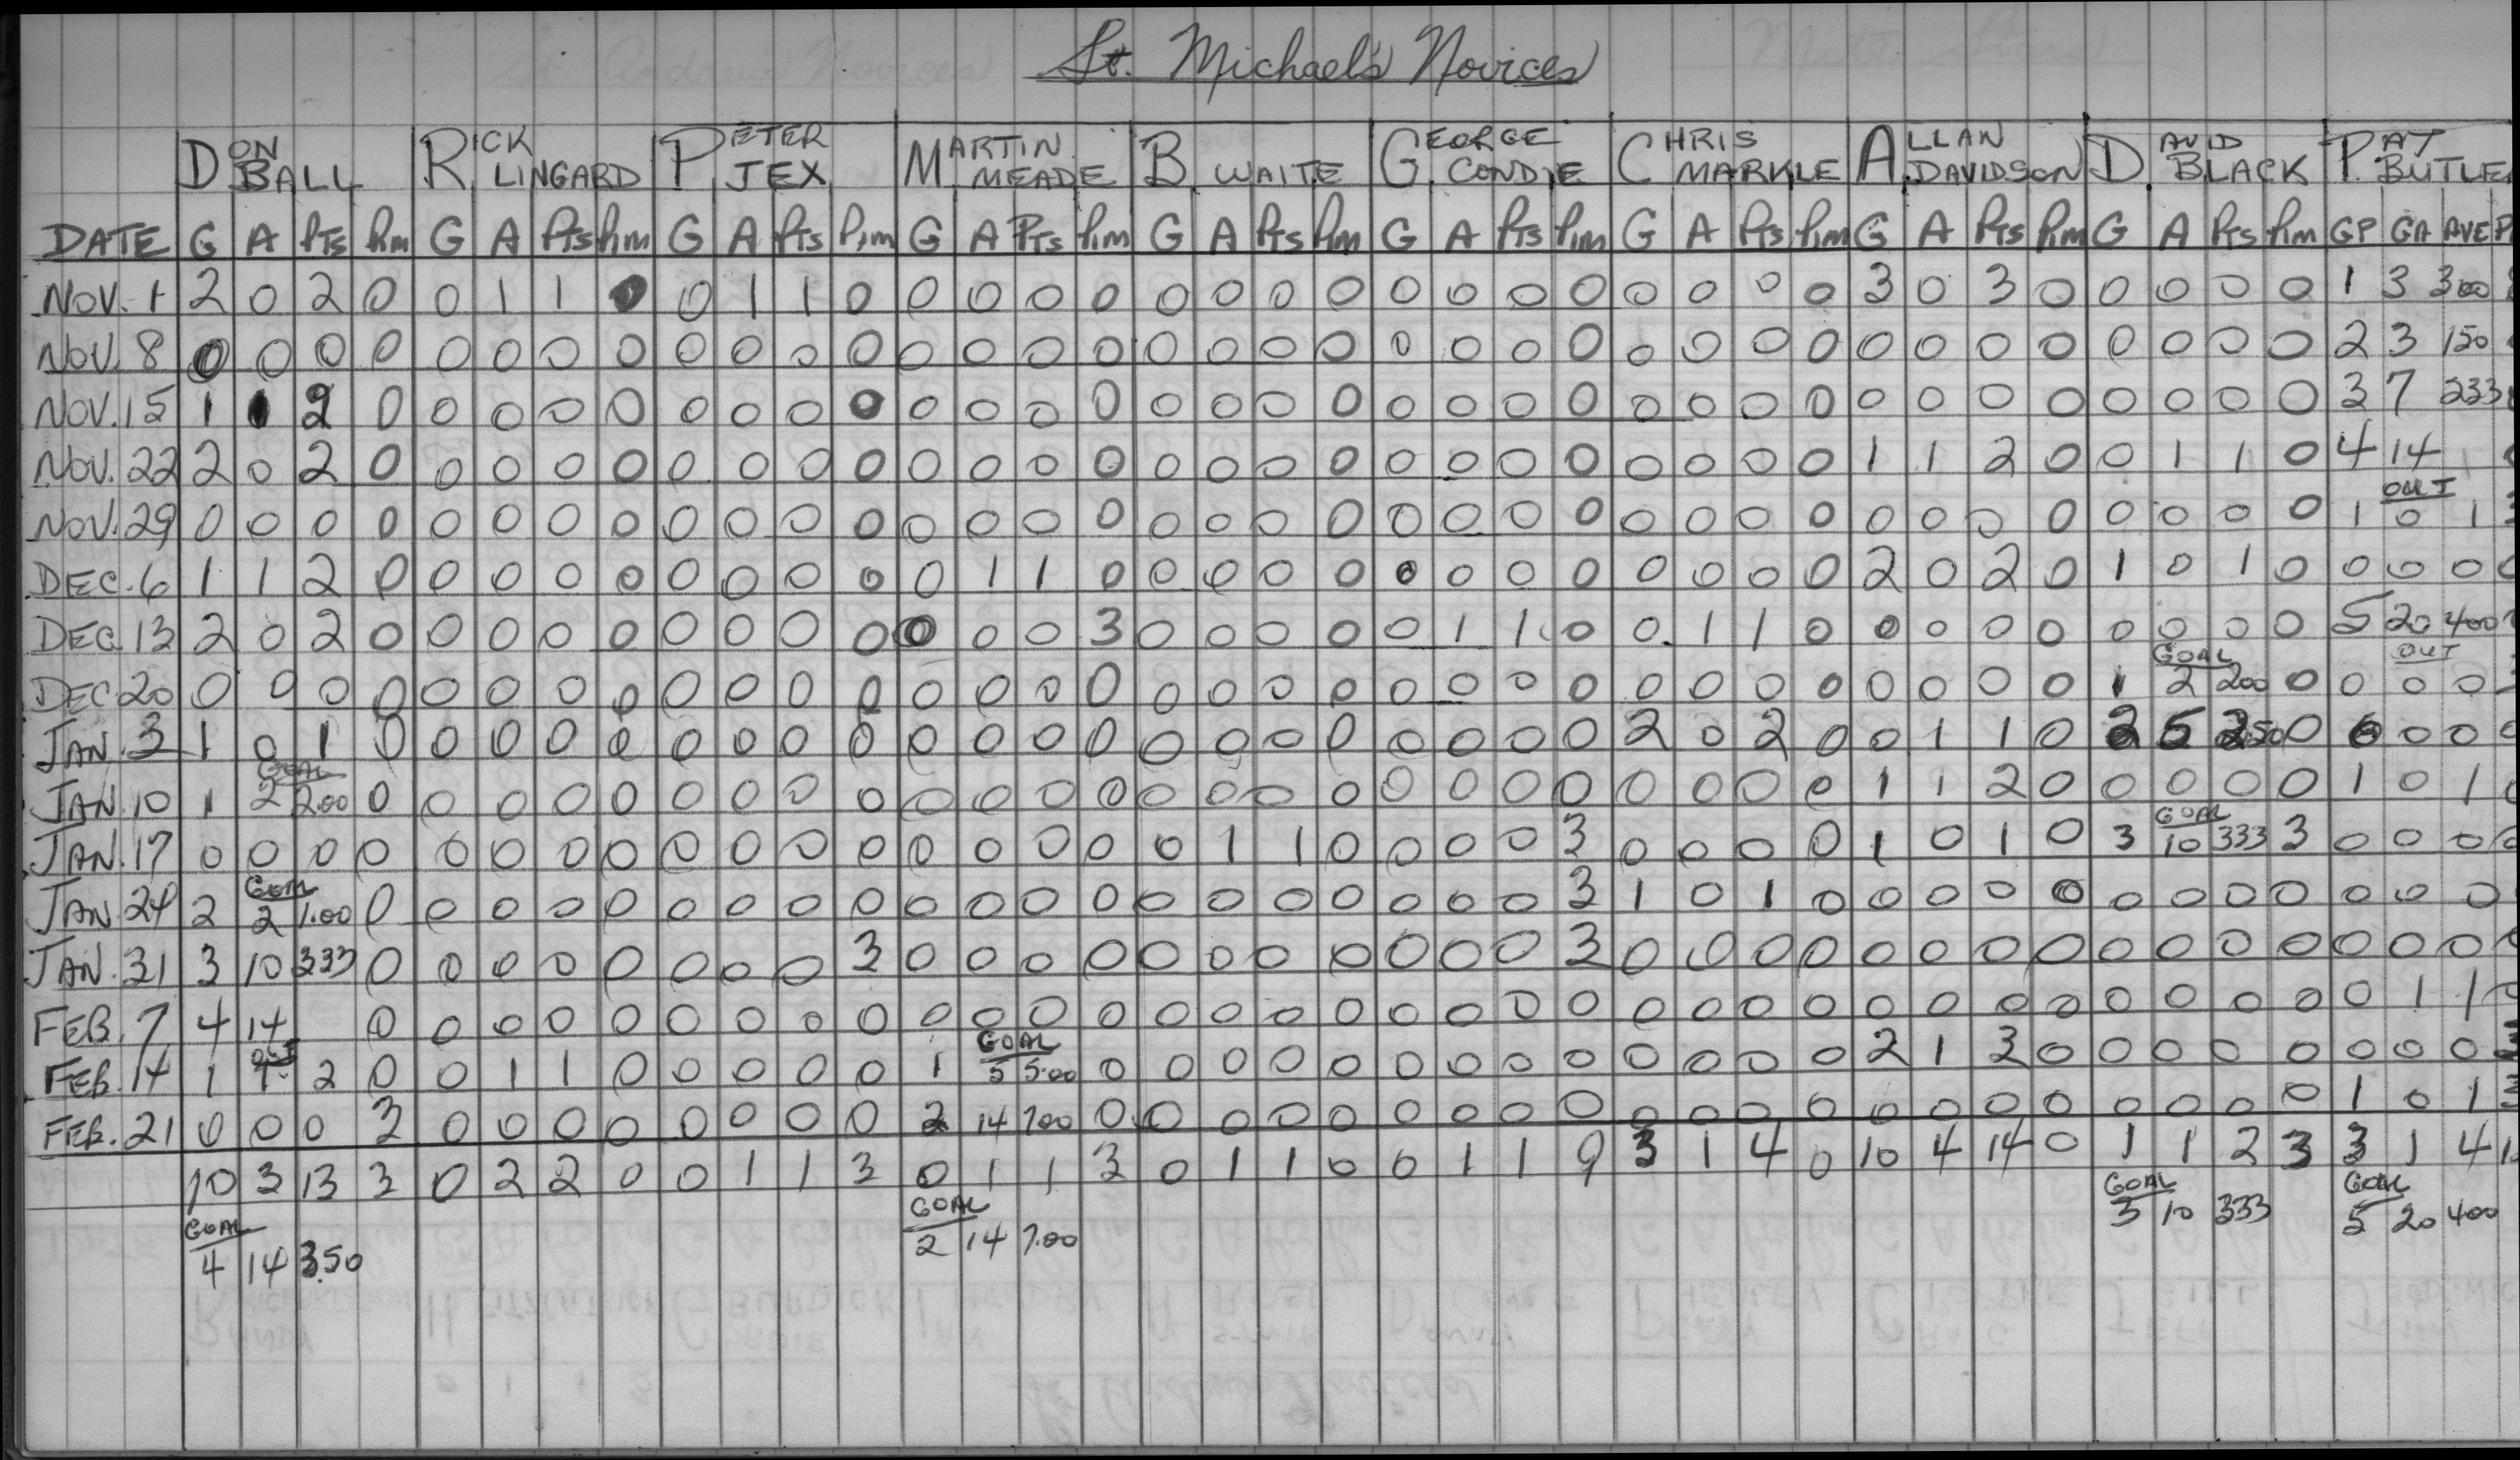 St. Michael's Novices
DON BALL RICK LINGARD PETER JEX MARTIN MEADE B. WAITE GEORGE CONDIE CHRIS MARKLE ALLAN DAVIDSON DAVID BLACK PAT BUTLE
DATE G A PTS PIM G A PTS PIM G A PTS PIM G A PTS PIM G A PTS PIM G A PTS PIM G A PTS PIM G A PTS PIM G A PTS PIM GP GA AVE P
NOV. 1 2 0 2 0 0 1 1 0 0 1 1 0 0 0 0 0 0 0 0 0 0 0 0 0 0 0 0 0 3 0 3 0 0 0 0 0 1 3 300
NOV. 8 0 0 0 0 0 0 0 0 0 0 0 0 0 0 0 0 0 0 0 0 0 0 0 0 0 0 0 0 0 0 0 0 0 0 0 0 2 3 150
NOV. 15 1 1 2 0 0 0 0 0 0 0 0 0 0 0 0 0 0 0 0 0 0 0 0 0 0 0 0 0 0 0 0 0 0 0 0 0 3 7 233
NOV. 22 2 0 2 0 0 0 0 0 0 0 0 0 0 0 0 0 0 0 0 0 0 0 0 0 0 0 0 0 1 1 2 0 0 1 1 0 4 14
NOV. 29 0 0 0 0 0 0 0 0 0 0 0 0 0 0 0 0 0 0 0 0 0 0 0 0 0 0 0 0 0 0 0 0 0 0 0 0 1 OUT 0 1
DEC. 6 1 1 2 0 0 0 0 0 0 0 0 0 0 1 1 0 0 0 0 0 0 0 0 0 0 0 0 0 2 0 2 0 1 0 1 0 0 0 0
DEC. 13 2 0 2 0 0 0 0 0 0 0 0 0 0 0 0 3 0 0 0 0 0 1 1 0 0 1 1 0 0 0 0 0 0 0 0 0 5 20 400
DEC 20 0 0 0 0 0 0 0 0 0 0 0 0 0 0 0 0 0 0 0 0 0 0 0 0 0 0 0 0 0 0 0 0 1 GOAL 2 200 0 0 OUT 0 0
JAN. 3 1 0 1 0 0 0 0 0 0 0 0 0 0 0 0 0 0 0 0 0 0 0 0 0 2 0 2 0 0 1 1 0 2 5 250 0 0 0 0
JAN. 10 1 GOAL 2 2.00 0 0 0 0 0 0 0 0 0 0 0 0 0 0 0 0 0 0 0 0 0 0 0 0 0 1 1 2 0 0 0 0 0 1 0 1
JAN. 17 0 0 0 0 0 0 0 0 0 0 0 0 0 0 0 0 0 1 1 0 0 0 0 3 0 0 0 0 1 0 1 0 3 GOAL 10 333 3 0 0 0
JAN. 24 2 GOAL 2 1.00 0 0 0 0 0 0 0 0 0 0 0 0 0 0 0 0 0 0 0 0 3 1 0 1 0 0 0 0 0 0 0 0 0 0 0 0
JAN. 31 3 10 333 0 0 0 0 0 0 0 0 3 0 0 0 0 0 0 0 0 0 0 0 3 0 0 0 0 0 0 0 0 0 0 0 0 0 0 0
FEB. 7 4 14 0 0 0 0 0 0 0 0 0 0 0 0 0 0 0 0 0 0 0 0 0 0 0 0 0 0 0 0 0 0 0 0 0 0 1 1
FEB. 14 1 OUT 1 2 0 0 1 1 0 0 0 0 0 1 GOAL 5 5.00 0 0 0 0 0 0 0 0 0 0 0 0 0 2 1 3 0 0 0 0 0 0 0 0
FEB. 21 0 0 0 3 0 0 0 0 0 0 0 0 2 14 700 0 0 0 0 0 0 0 0 0 0 0 0 0 0 0 0 0 0 0 0 0 1 0 1
10 3 13 3 0 2 2 0 0 1 1 3 0 1 1 3 0 1 1 0 0 1 1 9 3 1 4 0 10 4 14 0 1 1 2 3 3 1 4
GOAL GOAL GOAL GOAL
4 14 3.50 2 14 7.00 3 10 333 5 20 400